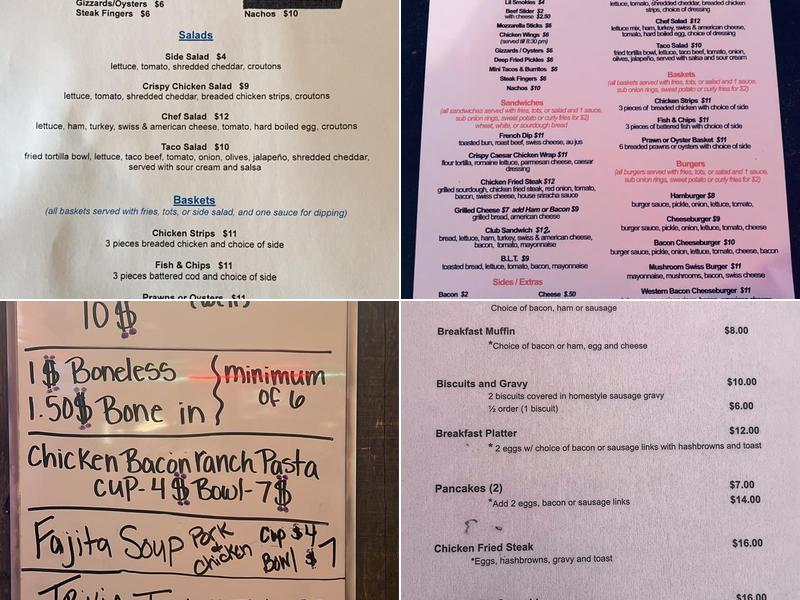 Gizzards/Oysters $6
Steak Fingers $6
Nachos $10
Salads
Side Salad $4
lettuce, tomato, shredded cheddar, croutons
Crispy Chicken Salad $9
lettuce, tomato, shredded cheddar, breaded chicken strips, croutons
Chef Salad $12
lettuce, ham, turkey, swiss & american cheese, tomato, hard boiled egg, croutons
Taco Salad $10
fried tortilla bowl, lettuce, taco beef, tomato, onion, olives, jalapeño, shredded cheddar,
served with sour cream and salsa
Baskets
(all baskets served with fries, tots, or side salad, and one sauce for dipping)
Chicken Strips $11
3 pieces breaded chicken and choice of side
Fish & Chips $11
3 pieces battered cod and choice of side
Prawns or Oysters $11
Lil Smokies $4
Beef Slider $2
with cheese $2.50
Mozzarella Sticks $6
Chicken Wings $6
(served till 8:30 pm)
Gizzards / Oysters $6
Deep Fried Pickles $6
Mini Tacos & Burritos $6
Steak Fingers $6
Nachos $10
Sandwiches
(all sandwiches served with fries, tots, or salad and 1 sauce,
sub onion rings, sweet potato or curly fries for $2)
wheat, white, or sourdough bread
French Dip $11
toasted bun, roast beef, swiss cheese, au jus
Crispy Caesar Chicken Wrap $11
flour tortilla, romaine lettuce, parmesan cheese, caesar
dressing
Chicken Fried Steak $12
grilled sourdough, chicken fried steak, red onion, tomato,
bacon, swiss cheese, house sriracha sauce
Grilled Cheese $7 add Ham or Bacon $9
grilled bread, american cheese
Club Sandwich $12
bread, lettuce, ham, turkey, swiss & american cheese,
bacon, tomato, mayonnaise
B.L.T. $9
toasted bread, lettuce, tomato, bacon, mayonnaise
Sides / Extras
Bacon $2
Cheese $.50
lettuce, tomato, shredded cheddar, breaded chicken
strips, choice of dressing
Chef Salad $12
lettuce mix, ham, turkey, swiss & american cheese,
tomato, hard boiled egg, choice of dressing
Taco Salad $10
fried tortilla bowl, lettuce, taco beef, tomato, onion,
olives, jalapeño, served with salsa and sour cream
Baskets
(all baskets served with fries, tots, or salad and 1 sauce,
sub onion rings, sweet potato or curly fries for $2)
Chicken Strips $11
3 pieces of breaded chicken with choice of side
Fish & Chips $11
3 pieces of battered fish with choice of side
Prawn or Oyster Basket $11
6 breaded prawns or oysters with choice of side
Burgers
(all burgers served with fries, tots, or salad and 1 sauce,
sub onion rings, sweet potato or curly fries for $2)
Hamburger $8
burger sauce, pickle, onion, lettuce, tomato,
Cheeseburger $9
burger sauce, pickle, onion, lettuce, tomato, cheese
Bacon Cheeseburger $10
burger sauce, pickle, onion, lettuce, tomato, cheese, bacon
Mushroom Swiss Burger $11
mayonnaise, mushrooms, bacon, swiss cheese
Western Bacon Cheeseburger $11
10$
1$ Boneless
1.50$ Bone in
minimum
of 6
Chicken Bacon ranch Pasta
CUP-4$ Bowl-7$
Fajita Soup Pork & Chicken Cup $4
Bowl $7
Choice of bacon, ham or sausage
Breakfast Muffin $8.00
*Choice of bacon or ham, egg and cheese
Biscuits and Gravy $10.00
2 biscuits covered in homestyle sausage gravy
½ order (1 biscuit) $6.00
Breakfast Platter $12.00
* 2 eggs w/ choice of bacon or sausage links with hashbrowns and toast
Pancakes (2) $7.00
*Add 2 eggs, bacon or sausage links $14.00
Chicken Fried Steak $16.00
*Eggs, hashbrowns, gravy and toast
$16.00